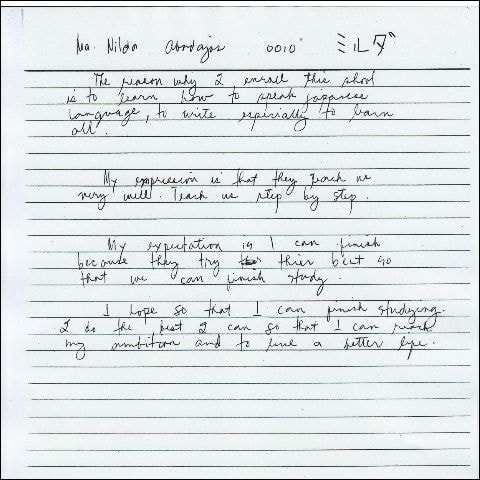 Ma. Nilda Abadajos 0010 ミルダ
The reason why I enroll this shool
is to learn how to speak japanese
language, to write especially to learn
all.
My expression is that they Teach us
very well. Teach us step by step.
My expectation is I can finish
because they try thier best so
that we can finish study.
I hope so that I can finish studying.
I do the best I can so that I can reach
my ambition and to live a better life.